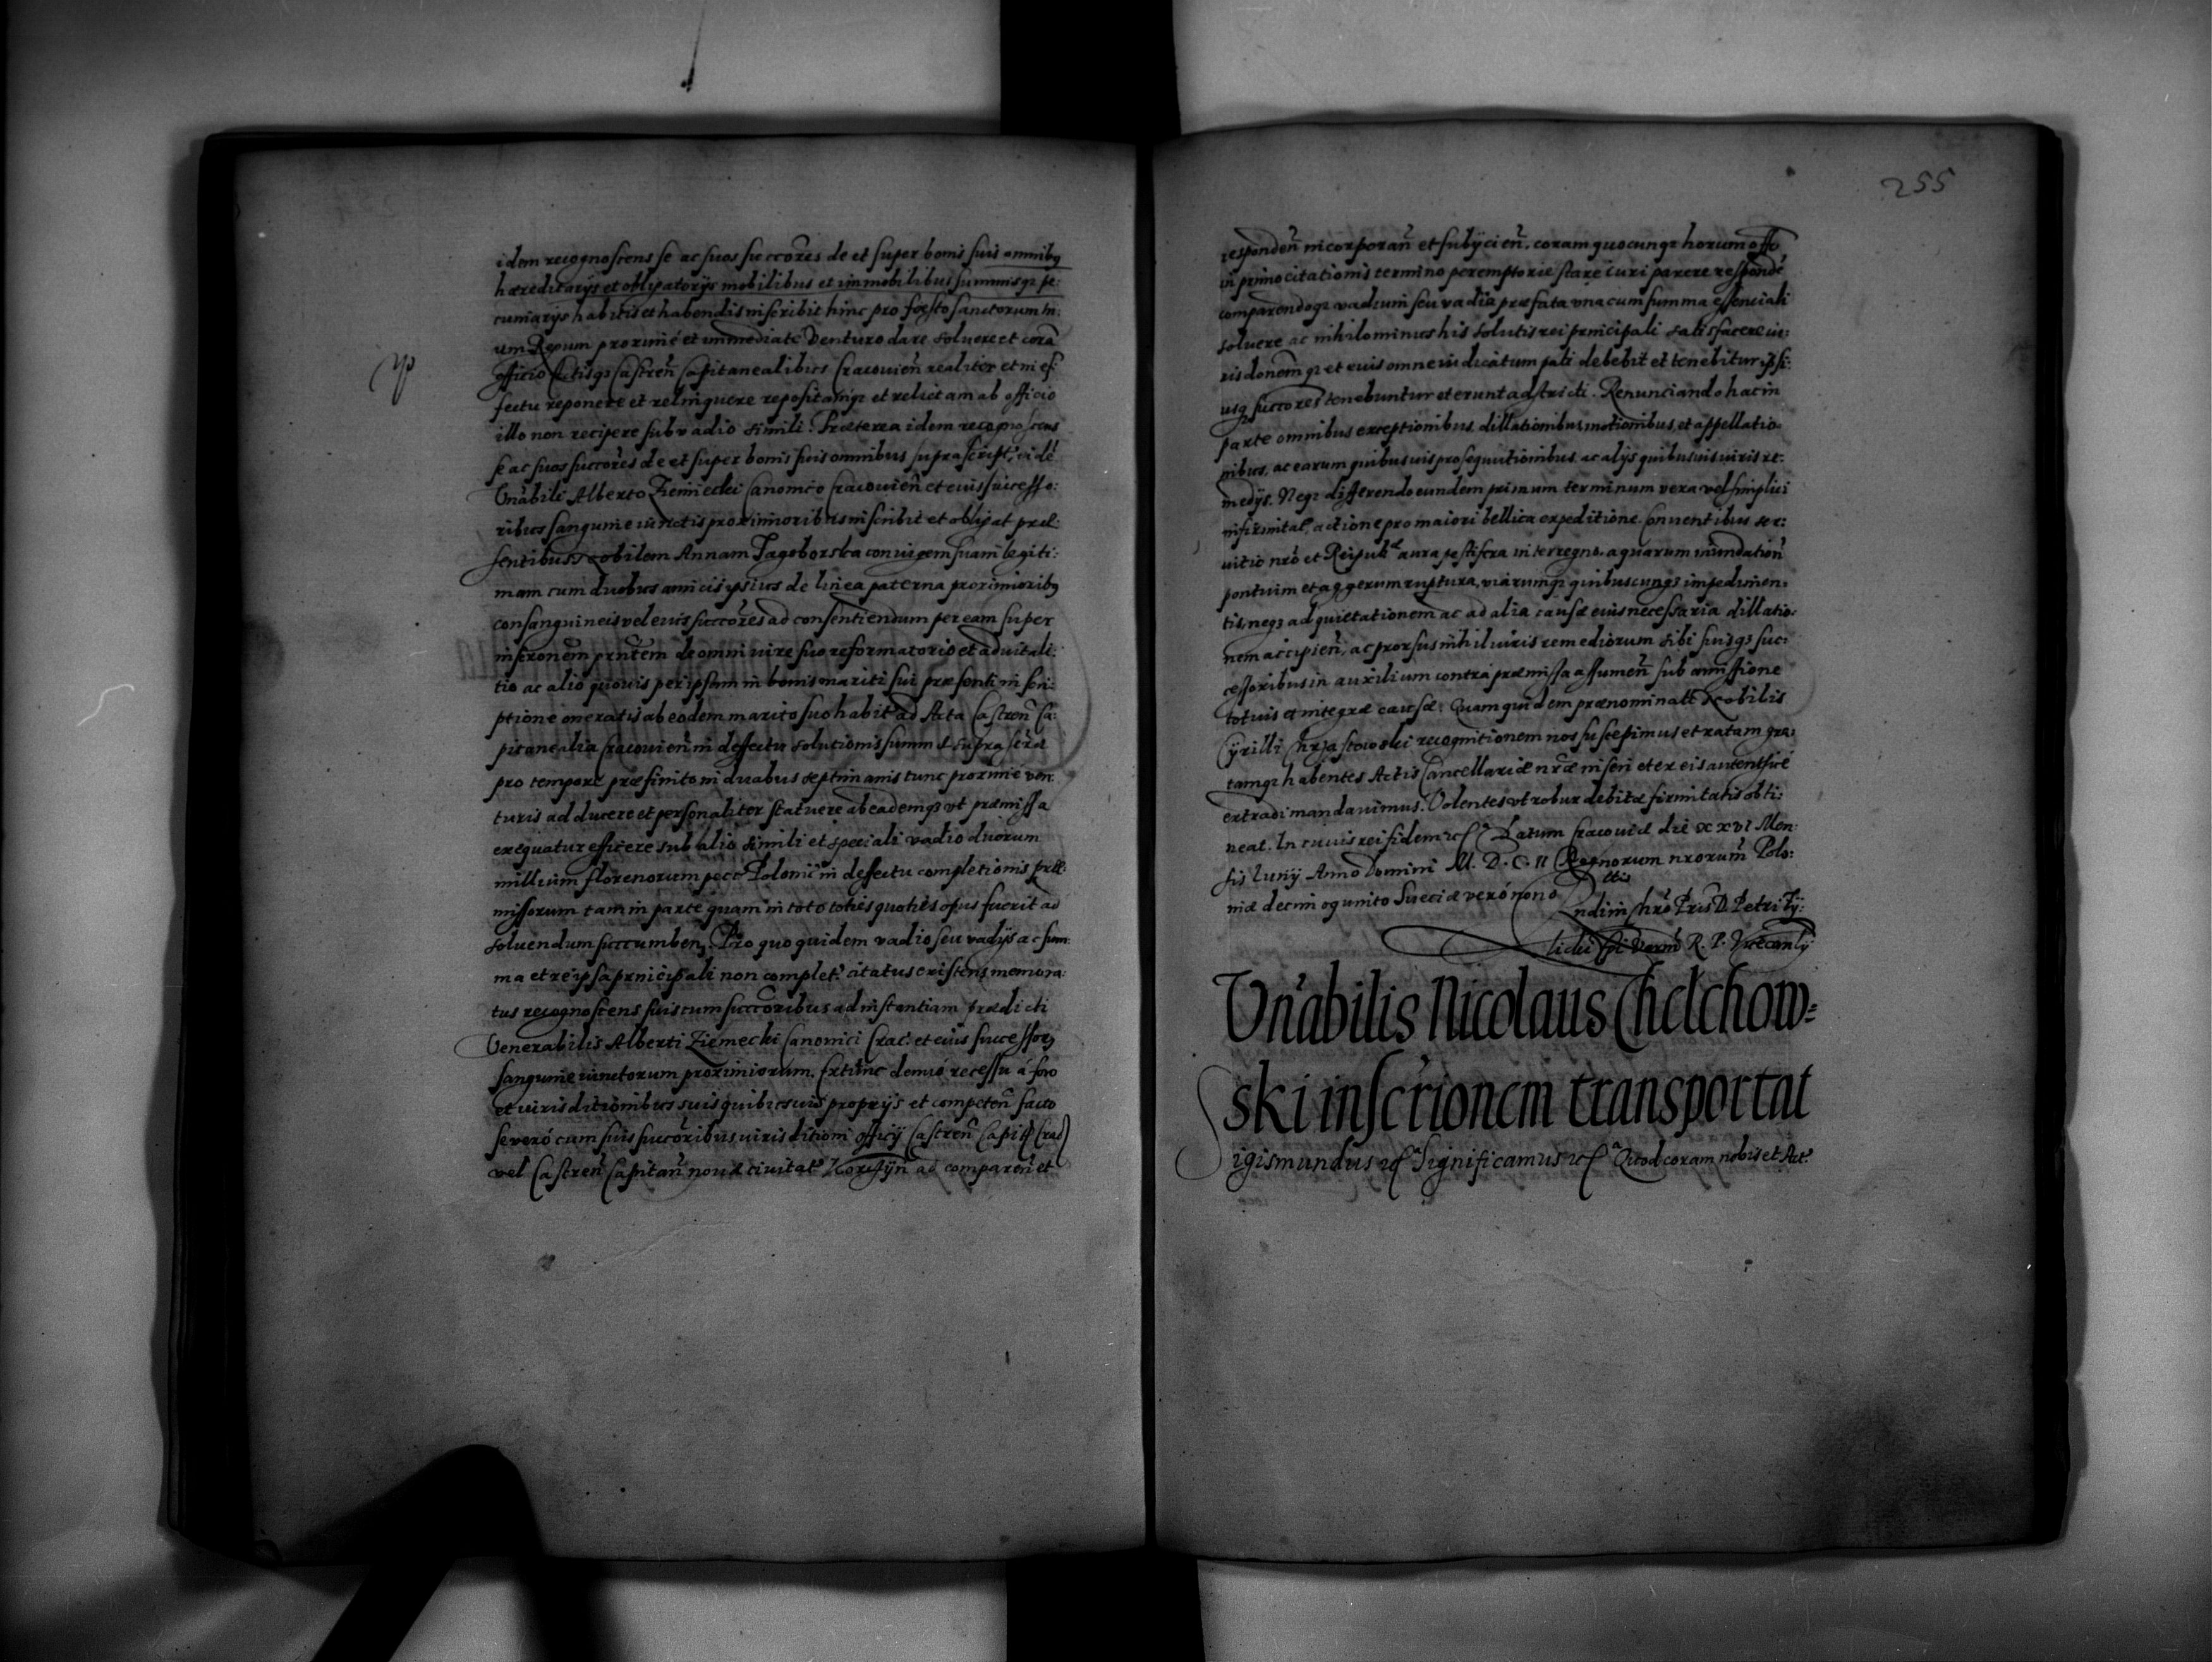 idem recognoscens se ac suos succores de et super bonis suis omnibq
hæreditarijs et obligatorijs mobilibus et immobilibus summisqz pe:
cuniarijs habitis et habendis inscribit hinc pro foesto sanctorum tri:
um Regum proxime et immediate Venturo dare solvere et corã
officio Actisqz Castren̄ Capitanealibus Cracovien̄ realiter et in ef:
fectu reponere et relinquere repositamqz et relictam ab officio
illo non recipere sub vadio simili. Præterea idem recognoscens
se ac suos succores de et super bonis suis omnibus suprascript:
Vnabili Alberto Ziemiecki Canonico Cracovien̄ et eius successo:
ribus sanguine iunctis proximioribus inscribit et obligat præ:
sentibus Nobilem Annam Jagoborska coniugem suam legiti:
mam cum duobus amicis ipsius de linea paterna proximioribq
consanguineis vel eius succores ad consentiendum per eam super
inscronem pntem de omni iure suo reformatorio et advitali:
tio ac alio quovis per ipsam in bonis mariti sui præsenti in scri:
ptione oneratis ab eodem marito suo habit ad Acta Castren̄ Ca:
pitanealia Cracovien̄ in deffectu solutionis summæ supra scræ
pro tempore præfinito in duabus septimanis tunc proxime ven:
turis adducere et personaliter statuere ab eademqz vt præmissa
exequatur efficere sub alio simili et speciali vadio duorum
millium florenorum pecc Polonic in deffectu completionis præ:
missorum tam in parte quam in toto toties quoties opus fuerit ad
solvendum succumben. Pro quo quidem vadio seu vadijs ac sum:
ma et re ipsa principali non complet: citatus existens memora:
tus recognoscens suis cum succoribus ad instantiam prædicti
Venerabilis Alberti Ziemecki Canonici Crac: et eius successorq
sanguine iunctorum proximiorum. Ex tunc demió recessu á foro
et iurisditionibus suis quibusuis proprijs et competen̄ facto
se veró cum suis succoribus iurisditioni officij Castren̄ Capitl Crac
vel Castren̄ Capitan̄ novæ civitat: Korczyn ad comparen̄ et
255
responden̄ incorporan̄ et subijcien̄, coram quocunqz horum offo
in primo citationis termino peremptorie stare iuri parere responde
comparendoqz vadium seu vadia præfata vna cum summa essenciali
solvere ac nihilominus his solutis rei principali satisfacere iu:
risdonemqz et euis omne iudicatum pati debebit et tenebitur ipsi:
usqz succores tenebuntur et erunt adstricti. Renunciando hac in
parte omnibus exceptionibus dillationibus motionibus et appellatio
nibus, ac earum quibusuis prosequutionibus ac alijs quibusuis iuris re:
medijs. Neqz differendo eundem primum terminum vera vel simplici
infirmitat, actione pro maiori bellica expeditione. Conventibus ser:
uitio nro et Reipub aura pestifera interregno. aquarum inundation̄
pontium et aggerum ruptura, viarumqz quibuscunqz impedimen:
tis, neqz ad quietationem ac ad alia causæ euis necessaria dillatio:
nem accipien̄, ac prorsus nihil iuris remediorum sibi suisqz suc:
cessoribus in auxilium contra præmissa assumen̄ sub amissione
totius et integræ causæ. Quam quidem prænominatt Nobilis
Cyrilli Chrząstowski recognitionem nos suscepimus et ratam gra:
tamqz habentes Actis Cancellariæ nræ inseri et ex eis autentice
extradi mandavimus. Volentes vt robur debitæ firmitatis obti:
neat. In cuius rei fidem etc Datum Cracoviæ die XXVI Men:
sis Iunij Anno Domini M. D. C. II Regnorum nrorum Polo:
niæ decimo quinto Sueciæ veró nono
Rndi in Chro Pris D. Petri Ty:
licki R. P. Vicecanly
Vnabilis Nicolaus Chelchow=
ski inscrionem transportat
Sigismundus etc Significamus etc Quod coram nobis et Act: